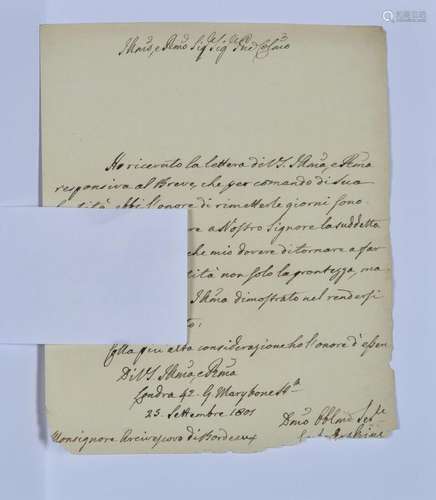 Illmo, e Rmo Sigre Sigre Pne Colmo
Ho ricevuto la lettera di VS. Illma, e Rma
responsiva al Breve, che per comando di Sua
ebbi l'onore di rimetterle giorni sono.
re a Nostro Signore la suddetta
che mio dovere di tornare a far
tità non solo la prontezza, ma
Illma dimostrato nel rendersi
to:
Colla più alta considerazione ho l'onore d'essere
Di VS. Illma, e Rma
Londra 42. G. Marybone St.
23. Settembre 1801
Dmo Obblmo
Erskine
Monsignore Arcivescovo di Bordeaux